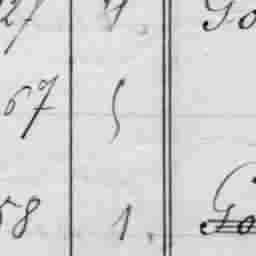 27 4 Go
67 5
58 1. Go